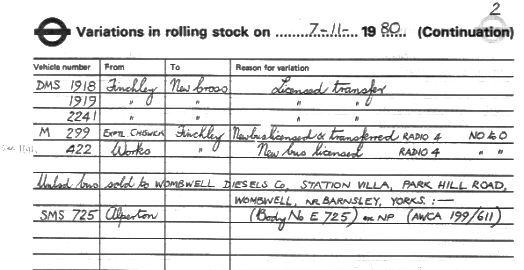 2
Variations in rolling stock on 7-11- 1980 (Continuation)
Vehicle number From To Reason for variation
DMS 1918 Finchley New Cross Licensed transfer
1919 " " " "
2241 " " " "
M 299 EXPTL CHISWICK Finchley New bus licensed & transferred RADIO 4 NO & O
422 Works " New bus licensed RADIO 4 " "
Unlsd bus sold to WOMBWELL DIESELS Co, STATION VILLA, PARK HILL ROAD,
WOMBWELL, NR BARNSLEY, YORKS. :—
SMS 725 Alperton (Body No E 725) on NP (AWCA 199/611)